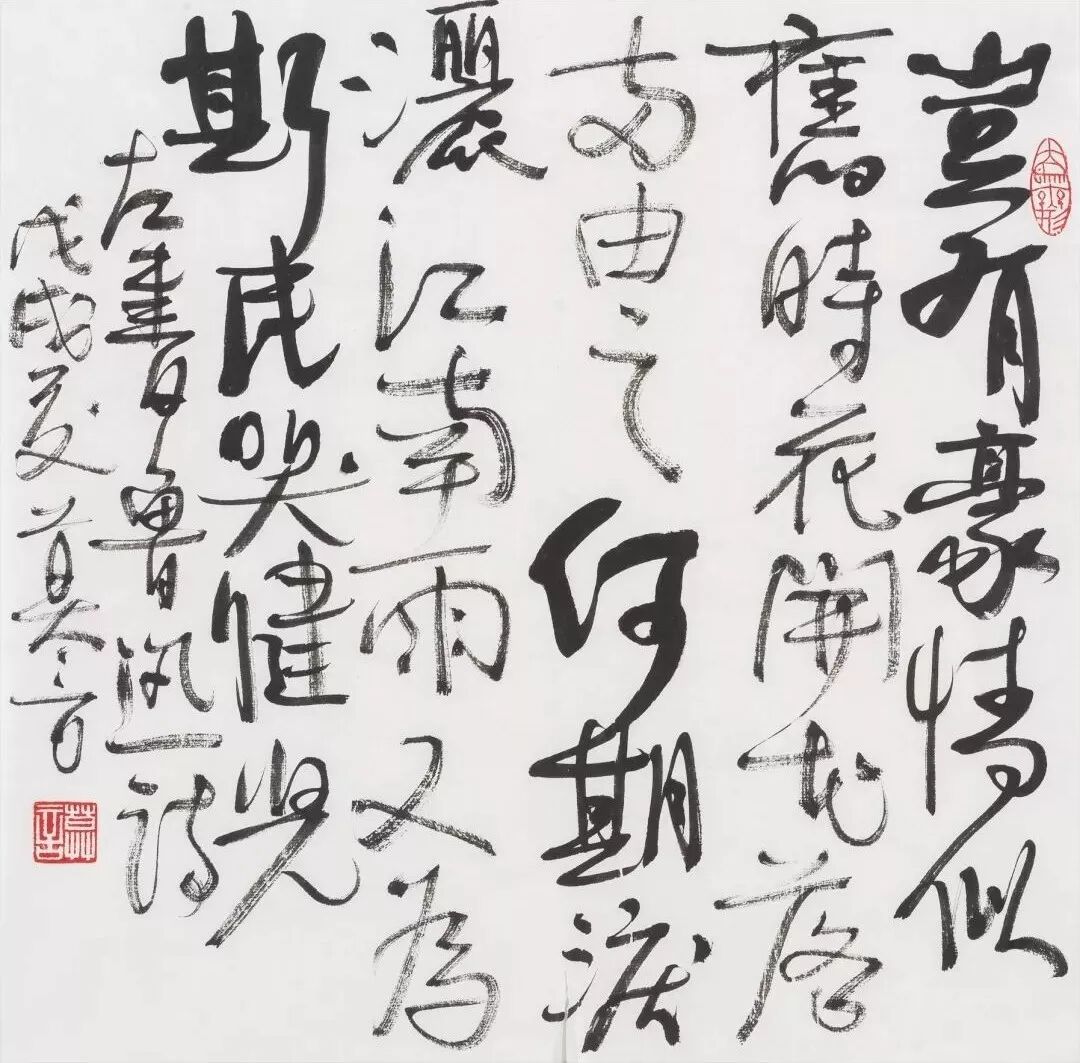 豈有豪情似
舊時花開花落
兩由之何期淚
灑江南雨又為
斯民哭健兒
左書魯迅詩
戊戌夏莫言
莫言